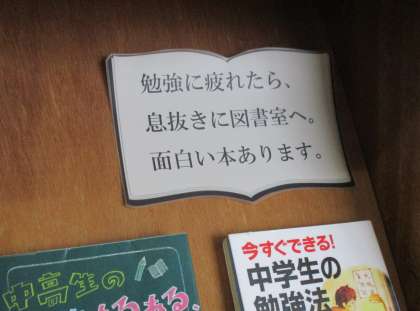 勉強に疲れたら、
息抜きに図書室へ。
面白い本あります。
今すぐできる!
中学生の
勉強法
中高生の
あるある